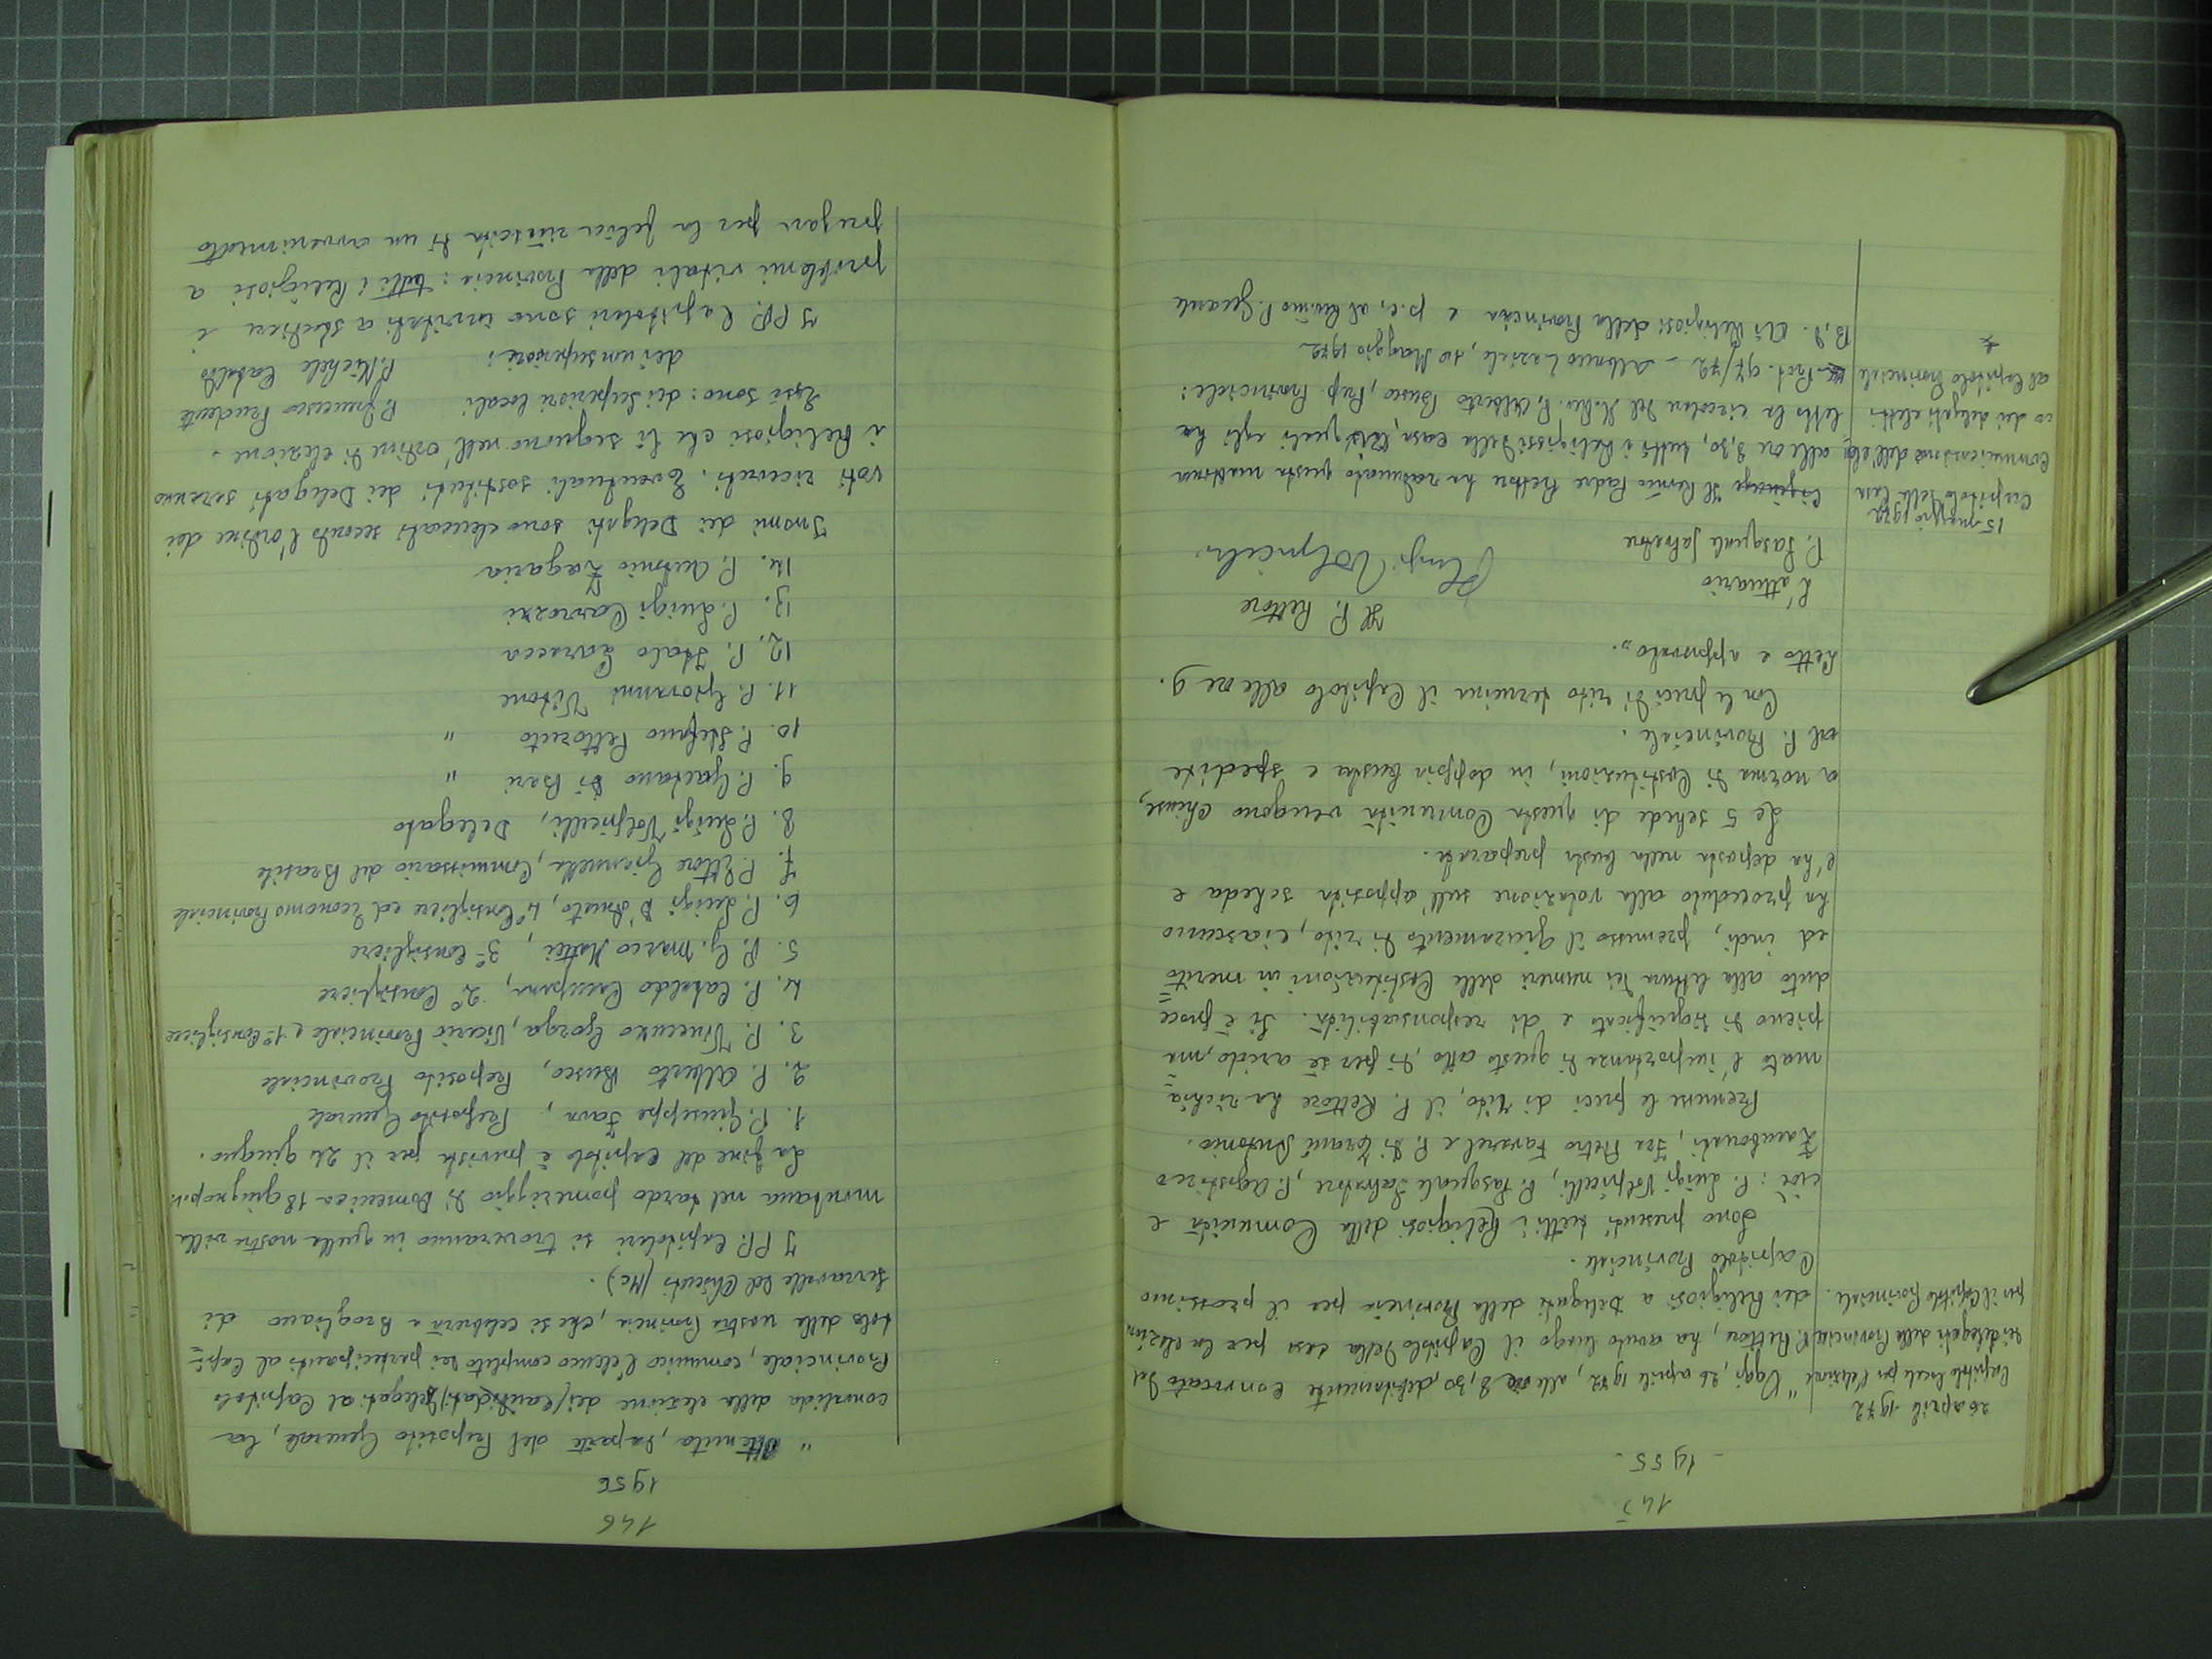 145
- 1955 -
26 aprile 1972
Capitolo locale per l'elezione
dei delegati della Provincia
per il Capitolo Provinciale.
" Oggi, 26 aprile 1972, alle ore 8,30, debitamente convocato dal
P. Rettore, ha avuto luogo il Capitolo della casa per la elezione
dei Religiosi a Delegati della Provincia per il prossimo
Capitolo Provinciale.
Sono presenti tutti i Religiosi della Comunità e
cioè: P. Luigi Volpicelli, P. Pasquale Salvatore, P. Agostino
Zambonati, Fra Pietro Favarel e P. Antonio.
Premesse le preci di rito, il P. Rettore ha richia=
mato l'importanza di questo atto, di per sè arido, ma
pieno di significato e di responsabilità. Si è proce
duto alla lettura dei numeri delle Costituzioni in merito
ed indi, premesso il Giuramento di rito, ciascuno
ha proceduto alla votazione sull'apposita scheda e
l'ha deposta nella busta preparata.
Le 5 schede di questa Comunità vengono chiuse,
a norma di Costituzioni, in doppia busta e spedite
al P. Provinciale.
Con le preci di rito termina il Capitolo alle ore 9.
Letto e approvato.,,
L'attuario
P. Pasquale Salvatore
Il P. Rettore
P. Luigi Volpicelli
15 maggio 1972
Capitolo della Casa
Comunicazione dell'elen
co dei delegati eletti
al Capitolo Provinciale
Il Rev.mo Padre Rettore ha radunato questa mattina
alle ore 8,30, tutti i Religiosi della casa, ai quali egli ha
letto la circolare del M. Rev. P. Alberto Busco, Prep. Provinciale:
Prot. 97/72 - Albano Laziale, 10 Maggio 1972
B.D. Ai Religiosi della Provincia e p.c. al Rev.mo P. Generale
146
1956
" Ottenuta, da parte del Preposito Generale, la
convalida della elezione dei candidati Delegati al Capitolo
Provinciale, comunico l'elenco completo dei partecipanti al Capi=
tolo della nostra Provincia, che si celebrerà a Brogliano di
Serravalle del Chienti (Mc).
I PP. Capitolari si troveranno in quella nostra villa
montana nel tardo pomeriggio di Domenica 18 giugno p.v.
La fine del Capitolo è prevista per il 24 giugno.
1. P. Giuseppe Fava, Preposito Generale
2. P. Alberto Busco, Preposito Provinciale
3. P. Vincenzo Gorga, Vicario Provinciale e 1° Consigliere
4. P. Cataldo Campana, 2° Consigliere
5. P. G. Marco Mattei, 3° Consigliere
6. P. Luigi D'Amato, 4° Consigliere ed Economo Provinciale
7. P. Ettore Giannella, Commissario del Brasile
8. P. Luigi Volpicelli, Delegato
9. P. Gaetano Di Bari "
10. P. Stefano Pettoruto "
11. P. Giovanni Vitone
12. P. Italo Laracca
13. P. Luigi Carrozzi
14. P. Antonio Zagaria
I nomi dei Delegati sono elencati secondo l'ordine dei
voti ricevuti. Eventuali sostituti dei Delegati saranno
i Religiosi che li seguono nell'ordine di elezione.
Essi sono: dei Superiori locali P. Francesco Prudente
dei non superiori: P. Michele Cataldo
I PP. Capitolari sono invitati a studiare i
problemi vitali della Provincia: tutti i Religiosi a
pregare per la felice riuscita di un avvenimento